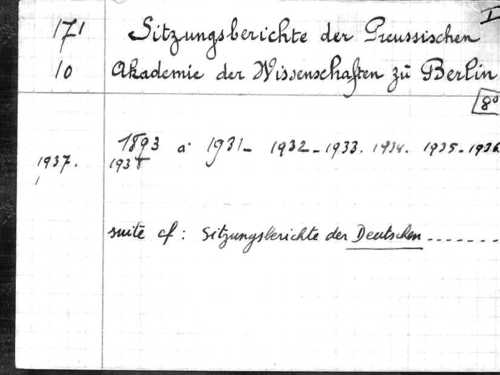 171 Sitzungsberichte der Preussischen I
10 Akademie der Wissenschaften zu Berlin
8°
1893 a 1931 - 1932 - 1933. 1934. 1935 - 1936
1937. 193
suite cf: Sitzungsberichte der Deutschen -------